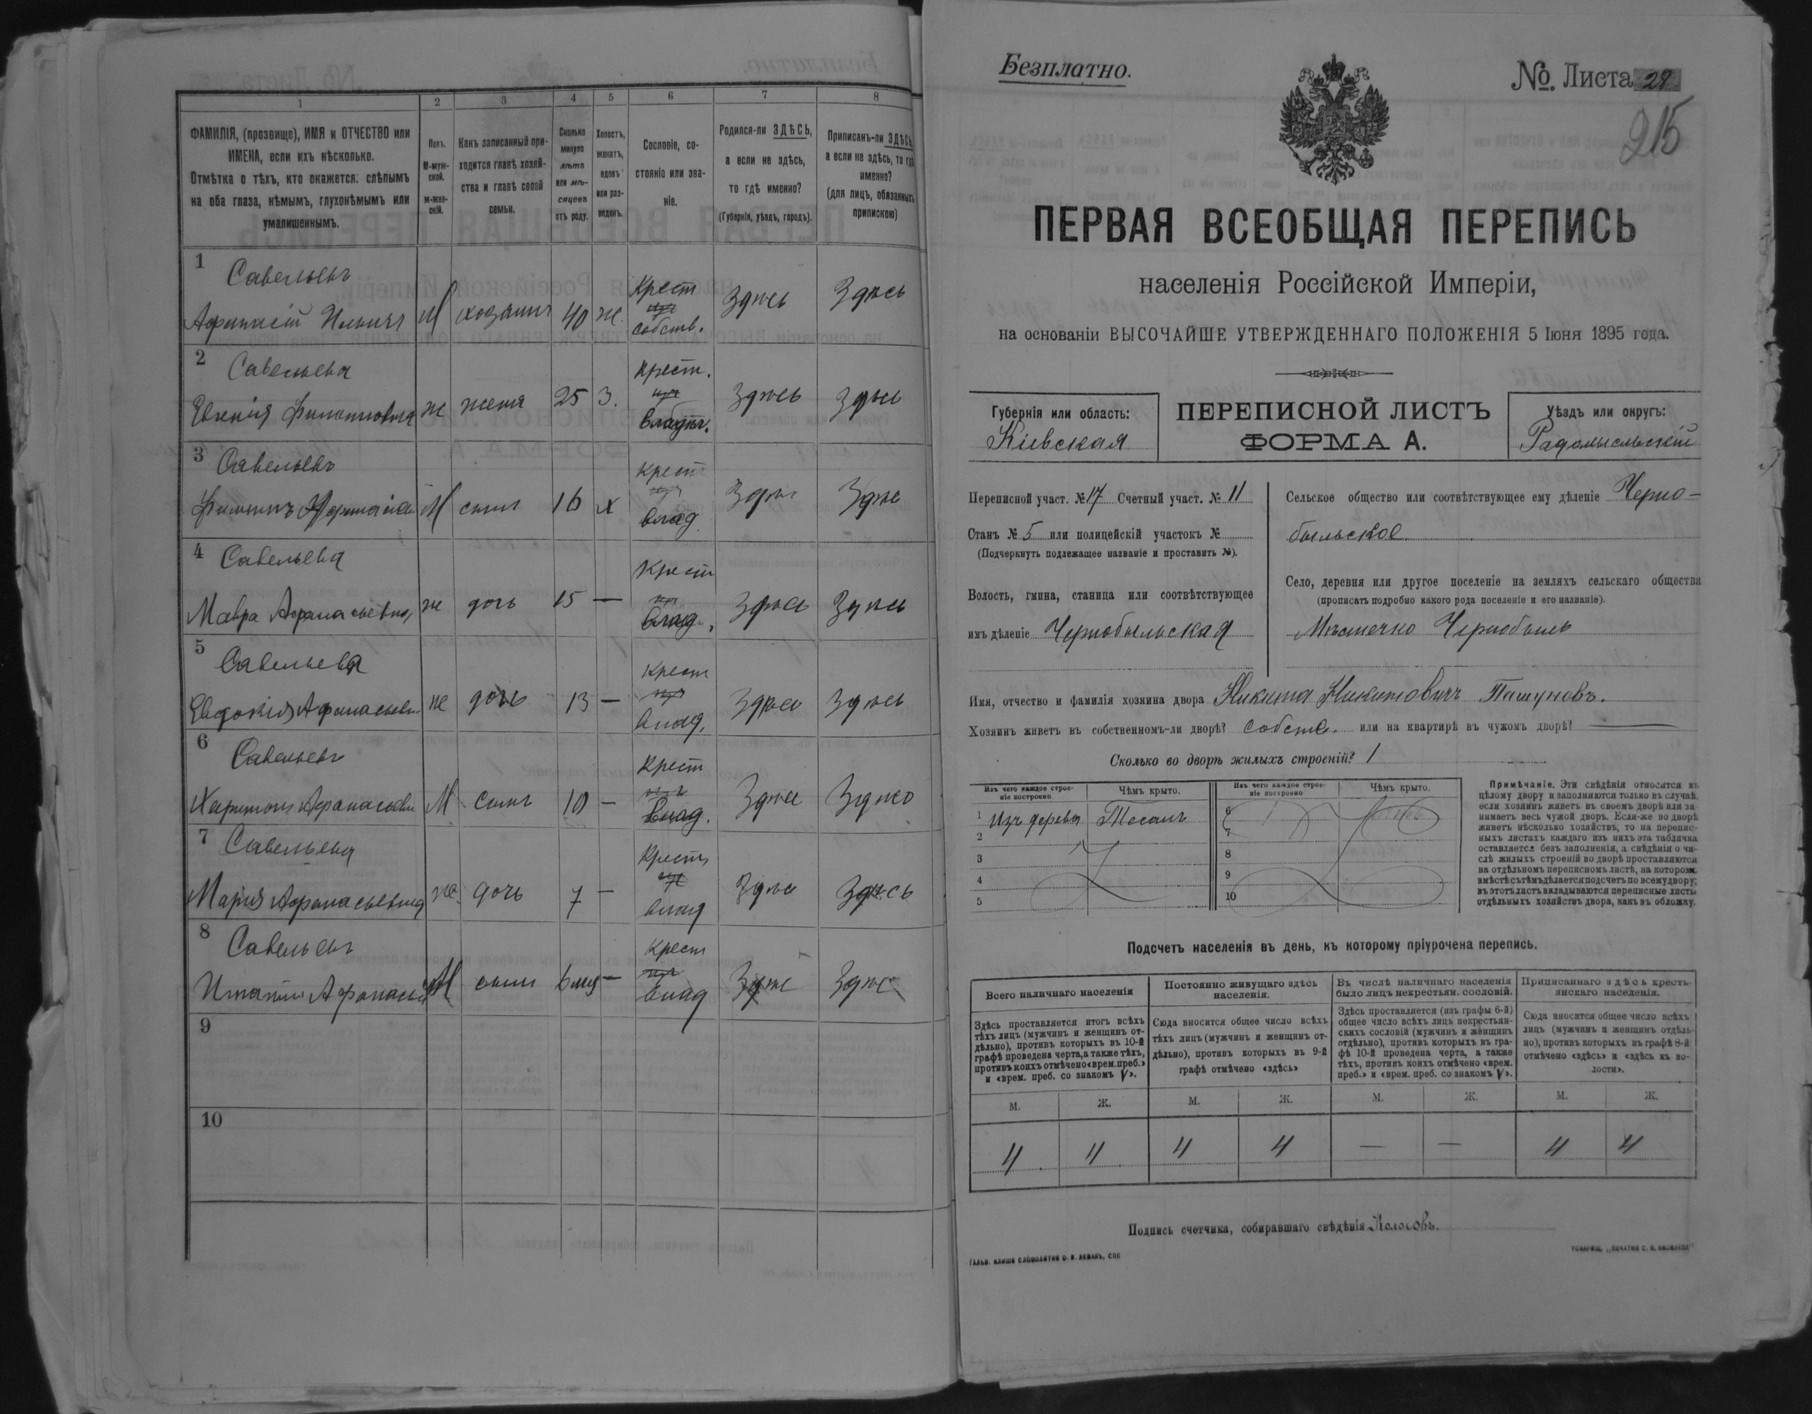 1 2 3 4 5 6 7 8
ФАМИЛІЯ, (прозвище), ИМЯ и ОТЧЕСТВО или
ИМЕНА, если ихъ нѣсколько.
Отмѣтка о тѣхъ, кто окажется: слѣпымъ
на оба глаза, нѣмымъ, глухонѣмымъ или
умалишеннымъ.
Полъ.
М-муж-
ской.
Ж-жен-
скій.
Какъ записанный при-
ходится главѣ хозяй-
ства и главѣ своей
семьи.
Сколько
минуло
лѣтъ
или мѣ-
сяцевъ
отъ роду.
Холостъ,
женатъ,
вдовъ
или раз-
веденъ.
Сословіе, со-
стояніе или зва-
ніе.
Родился-ли ЗДѢСЬ,
а если не здѣсь,
то гдѣ именно?
(Губернія, уѣздъ, городъ).
Приписанъ-ли ЗДѢСЬ,
а если не здѣсь, то гдѣ
именно?
(для лицъ, обязанныхъ
припискою)
1 Савельевъ
Афанасій Ильичъ М хозяинъ 40 ж. Крест собств. Здѣсь Здѣсь
2 Савельева
Евгенія Филипповна ж жена 25 З. Крест. владѣл. Здѣсь Здѣсь
3 Савельевъ
Филиппъ М сынъ 16 х Крест влад. Здѣсь Здѣсь
4 Савельева
Мавра Афанасьевна ж дочь 15 — Крест влад. Здѣсь Здѣсь
5 Савельева
Евдокія Афанасьевн ж дочь 13 — Крест влад. Здѣсь Здѣсь
6 Савельевъ
Харитонъ Афанасьеви М сынъ 10 — Крест влад. Здѣсь Здѣсь
7 Савельева
Марія Афанасьевна ж. дочь 7 — Крестъ влад Здѣсь Здѣсь
8 Савельевъ
Игнатій Афанасьев М сынъ 6 мц — Крест влад Здѣс Здѣс
9
10
Безплатно.
№. Листа 28
215
ПЕРВАЯ ВСЕОБЩАЯ ПЕРЕПИСЬ
населенія Россійской Имперіи,
на основаніи ВЫСОЧАЙШЕ УТВЕРЖДЕННАГО ПОЛОЖЕНІЯ 5 Іюня 1895 года.
Губернія или область:
Кіевская
ПЕРЕПИСНОЙ ЛИСТЪ
ФОРМА А.
Уѣздъ или округъ:
Радомысльскій
Переписной участ. № 17 Счетный участ. № 11
Станъ № 5 или полицейскій участокъ №
(Подчеркнуть подлежащее названіе и проставить №).
Волость, гмина, станица или соотвѣтствующее
имъ дѣленіе Чернобыльская
Сельское общество или соотвѣтствующее ему дѣленіе Черно-
быльское
Село, деревня или другое поселеніе на земляхъ сельскаго общества
(прописать подробно какого рода поселеніе и его названіе).
Мѣстечко Чернобыль
Имя, отчество и фамилія хозяина двора Никита Никитовичъ Пашуновъ.
Хозяинъ живетъ въ собственномъ-ли дворѣ? собств. или на квартирѣ въ чужомъ дворѣ? —
Сколько во дворѣ жилыхъ строеній? 1
Изъ чего каждое строе-
ніе построено
Чѣмъ крыто.
Изъ чего каждое строе-
ніе построено
Чѣмъ крыто.
1 Изъ дерева Тесомъ
2
3
4
5
6
7
8
9
10
Примѣчаніе. Эти свѣдѣнія относятся къ
цѣлому двору и заполняются только въ случаѣ,
если хозяинъ живетъ въ своемъ дворѣ или за-
нимаетъ весь чужой дворъ. Если-же во дворѣ
живетъ нѣсколько хозяйствъ, то на перепис-
ныхъ листахъ каждаго изъ нихъ эта табличка
оставляется безъ заполненія, а свѣдѣнія о чи-
слѣ жилыхъ строеній во дворѣ проставляются
на отдѣльномъ переписномъ листѣ, на которомъ
вмѣстѣ съ тѣмъ дѣлается подсчетъ по всему двору;
въ этотъ листъ вкладываются переписные листы
отдѣльныхъ хозяйствъ двора, какъ въ обложку.
Подсчетъ населенія въ день, къ которому пріурочена перепись.
Всего наличнаго населенія
Здѣсь проставляется итогъ всѣхъ
тѣхъ лицъ (мужчинъ и женщинъ от-
дѣльно), противъ которыхъ въ 10-й
графѣ проведена черта, а также тѣхъ,
противъ коихъ отмѣчено «врем. преб.»
и «врем. преб. со знакомъ V».
Постоянно живущаго здѣсь
населенія.
Сюда вносится общее число всѣхъ
тѣхъ лицъ (мужчинъ и женщинъ от-
дѣльно), противъ которыхъ въ 9-й
графѣ отмѣчено «здѣсь»
Въ числѣ наличнаго населенія
было лицъ некрестьян. сословій.
Здѣсь проставляется (изъ графы 6-й)
общее число всѣхъ лицъ некрестьян-
скихъ сословій (мужчинъ и женщинъ
отдѣльно), противъ которыхъ въ гра-
фѣ 10-й проведена черта, а также
тѣхъ, противъ коихъ отмѣчено «врем.
преб.» и «врем. преб. со знакомъ V».
Приписаннаго здѣсь кресть-
янскаго населенія.
Сюда вносится общее число всѣхъ
лицъ (мужчинъ и женщинъ отдѣль-
но), противъ которыхъ въ графѣ 8-й
отмѣчено «здѣсь» и «здѣсь въ во-
лости».
М. Ж. М. Ж. М. Ж. М. Ж.
4 4 4 4 — — 4 4
Подпись счетчика, собиравшаго свѣдѣнія Колосовъ.